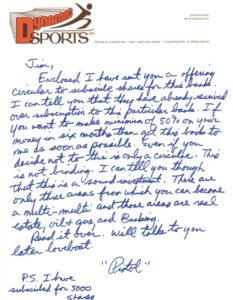 Dynamo
SPORTS
Jim,
Enclosed I have sent you a offering
circular to subscribe shares for this bank.
I can tell you that they have already received
over subscription to this particular bank. If
you want to make minimum of 50% on your
money in six months than get this back to
me as soon as possible. Even if you
decide not to this is only a circular. This
is not binding. I can tell you though
that this is a "sound investment". There are
only three areas from which you can become
a multi-multi and those areas are real
estate, oil & gas, and Banking.
Read it over. Will talk to you
later loveboat.
"Pistol"
P.S. I have
subscribed for 5000
shares